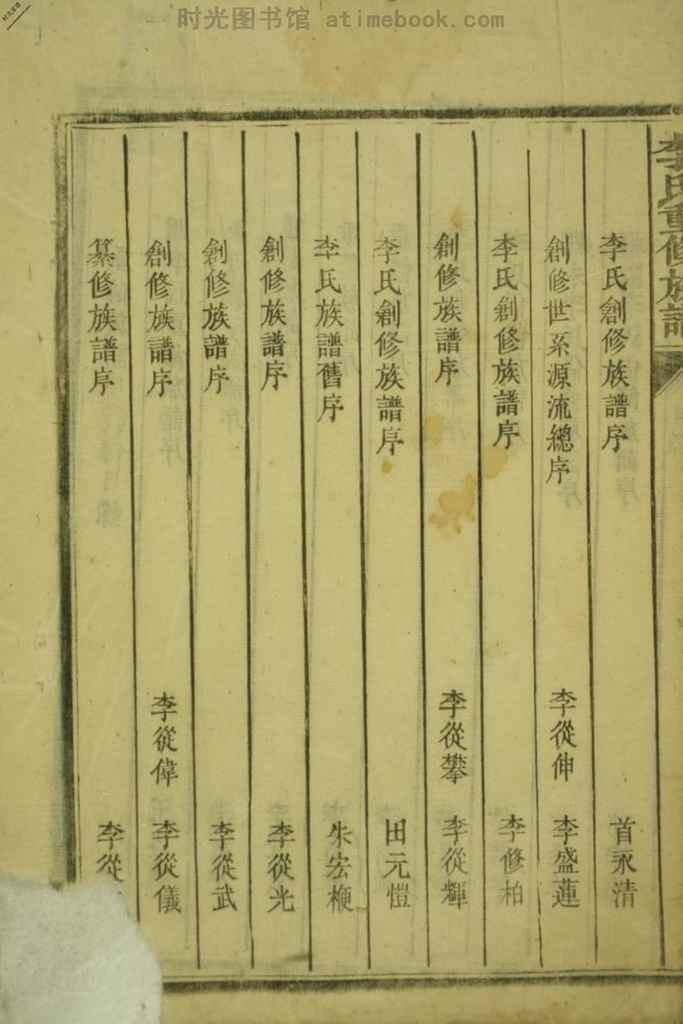 时光图书馆 atimebook.com
李氏重修族譜
李氏創修族譜序 首永清
創修世系源流總序 李從伸 李盛蓮
李氏創修族譜序 李修柏
創修族譜序 李從攀 李從輝
李氏創修族譜序 田元愷
李氏族譜舊序 朱宏楩
創修族譜序 李從光
創修族譜序 李從武
創修族譜序 李從偉 李從儀
纂修族譜序 李從